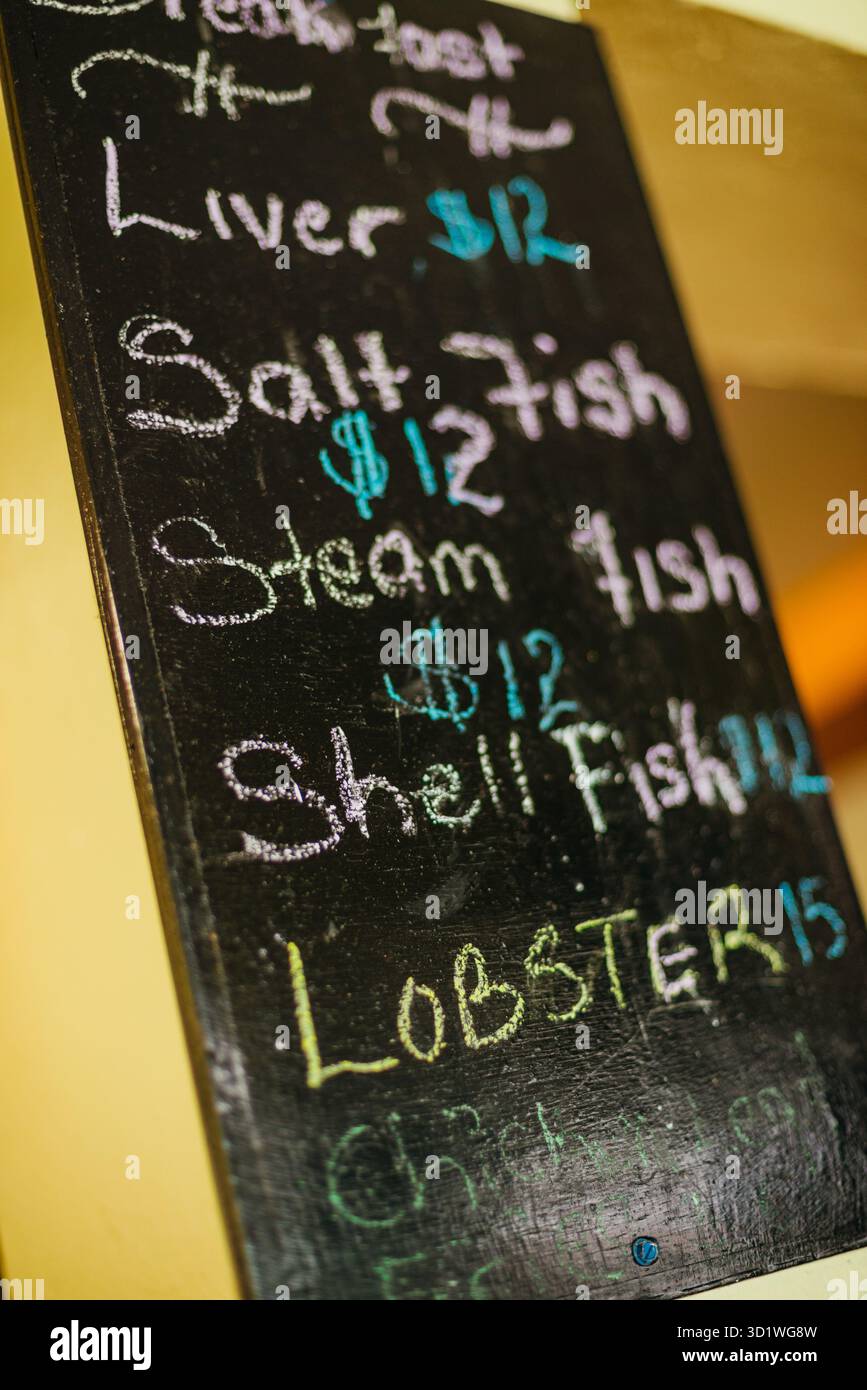 Breakfast
Liver $12
Salt Fish
$12
Steam Fish
$12
Shell Fish $12
LOBSTER 15
alamy
Image ID: 3D1WG8W
www.alamy.com